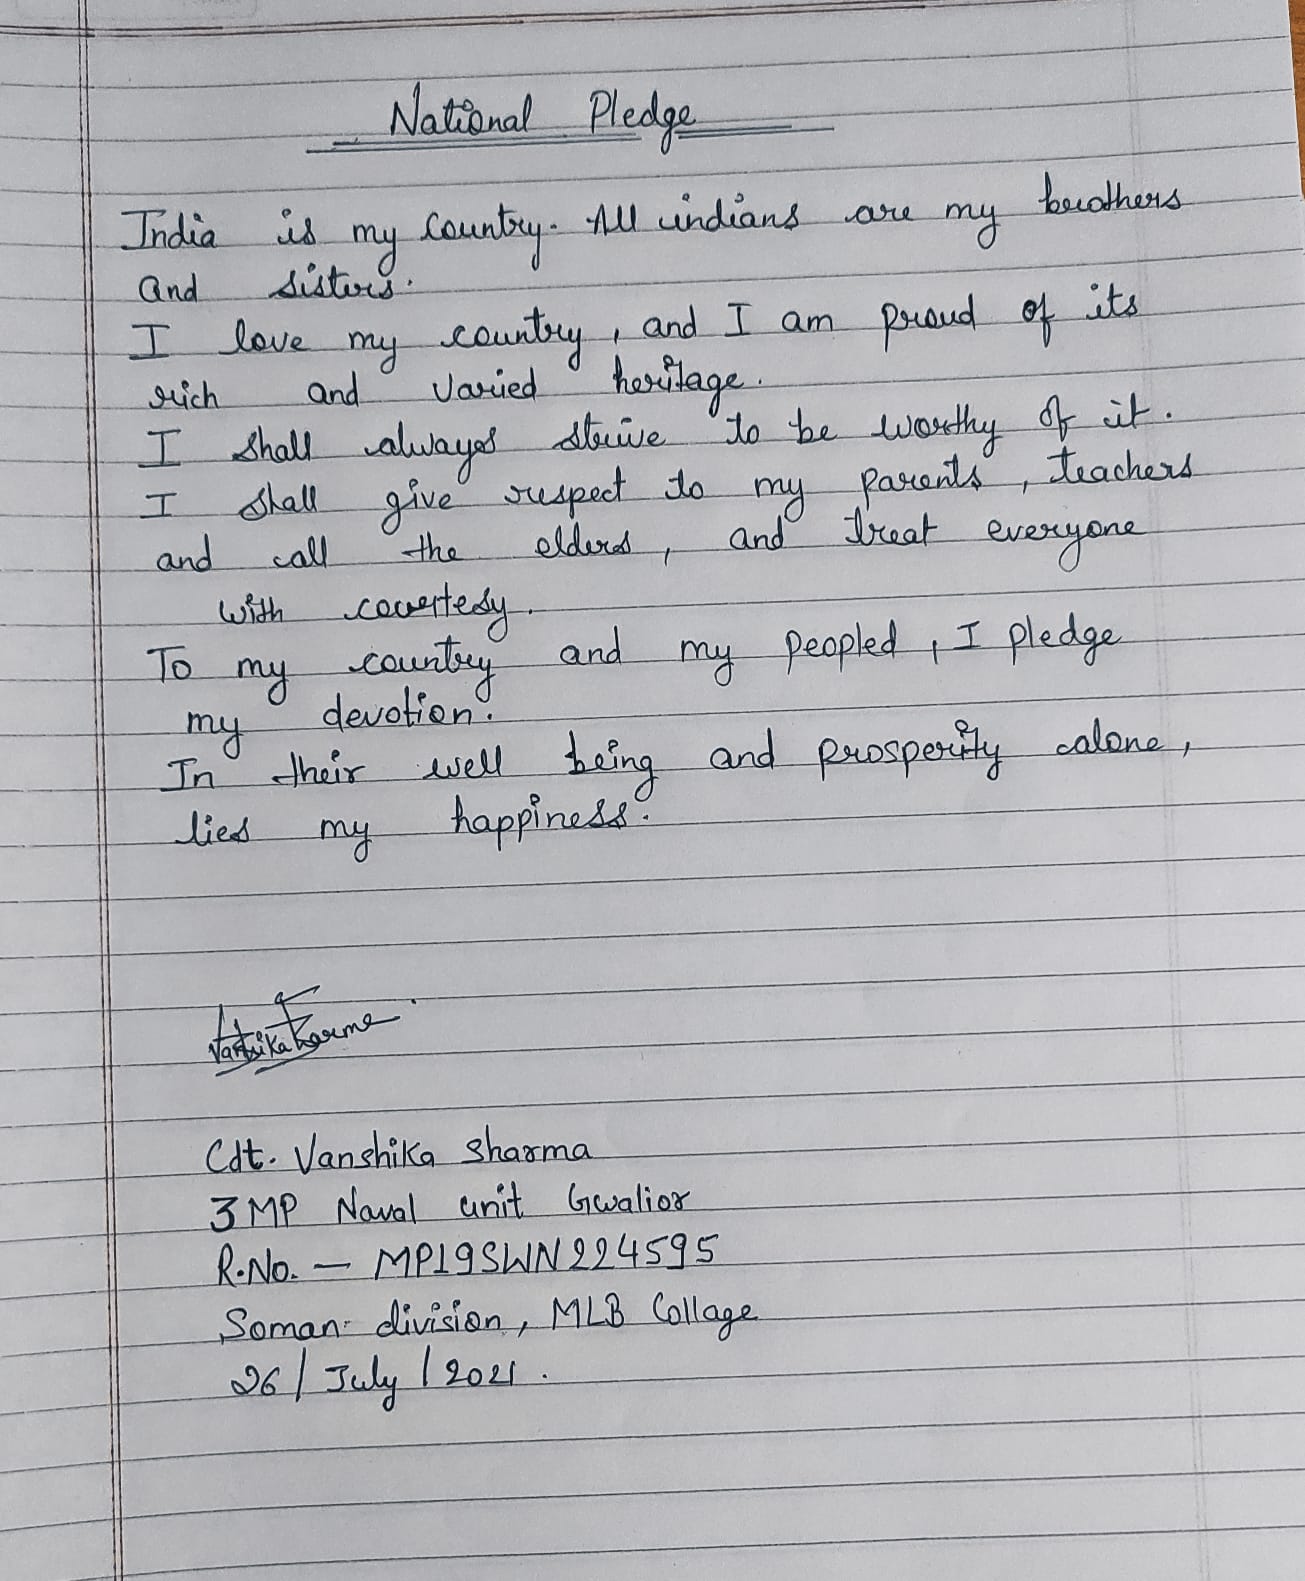 National Pledge
India is my Country. All indians are my brothers
and sisters.
I love my country, and I am proud of its
rich and varied heritage.
I shall always strive to be worthy of it.
I shall give respect to my parents, teachers
and call the elders, and treat everyone
with courtesy.
To my country and my peopled, I pledge
my devotion.
In their well being and prosperity alone,
lies my happiness.
Cdt. Vanshika Sharma
3 MP Naval unit Gwalior
R.No. - MP19SWN224595
Soman division, MLB Collage
26/July/2021.